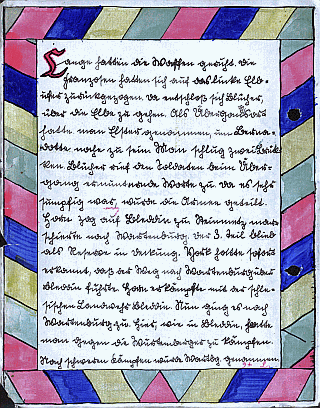 Lange hatten die Waffen geruht. Die
Franzosen hatten sich auf das linke Elb-
ufer zurückgezogen. Da entschloß sich Blücher,
über die Elbe zu gehen. Als Übergangsort
hatte man Elster genommen, um Berna-
dotte nahe zu sein. Man schlug zwei Brük-
ken. Blücher rief den Soldaten beim Über-
gang ermunternde Worte zu. Da es sehr
sumpfig war, wurde die Armee geteilt.
Horn zog auf Bleddin zu. Steinmetz mar-
schierte nach Wartenburg. Der 3. Teil blieb
als Reserve in Deckung. York hatte sofort
erkannt, daß der Weg nach Wartenburg über
Bleddin führte. Horn erkämpfte mit der schle-
sischen Landwehr Bleddin. Nun ging es nach
Wartenburg zu. Hier, wie in Bleddin, hatte
man gegen die Würtenberger zu kämpfen.
Nach schweren Kämpfen wurde Wartbg. genommen.